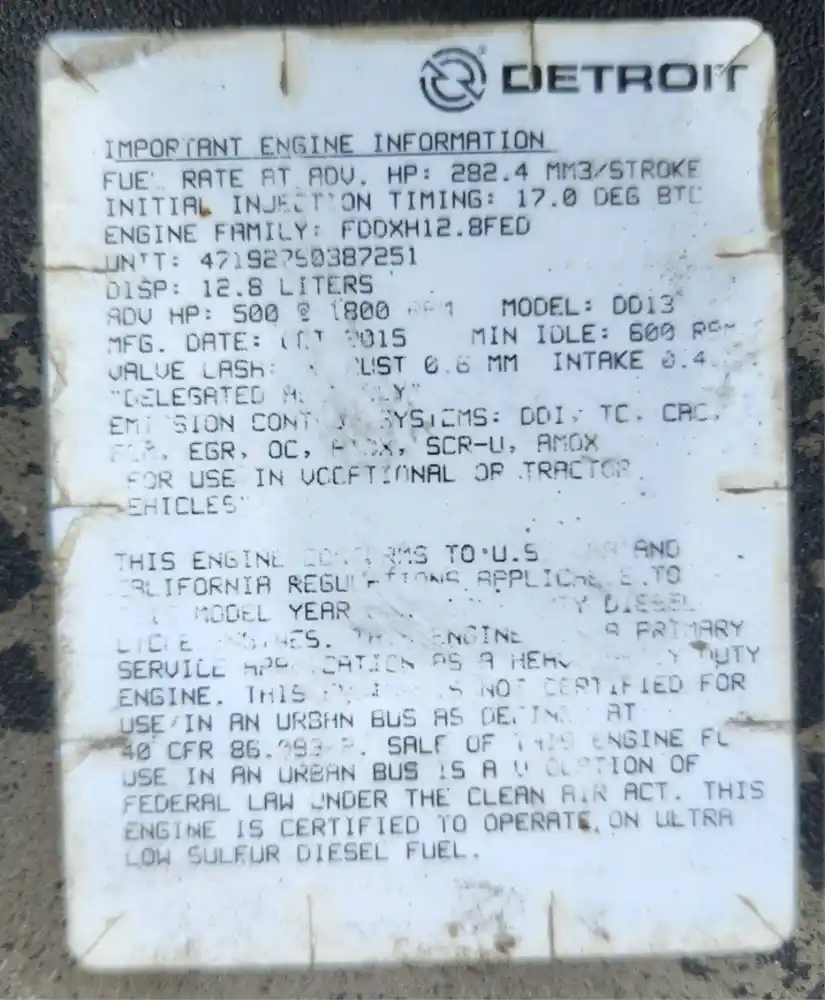 DETROIT
IMPORTANT ENGINE INFORMATION
FUEL RATE AT ADV. HP: 282.4 MM3/STROKE
INITIAL INJECTION TIMING: 17.0 DEG BTC
ENGINE FAMILY: FDDXH12.8FED
UNIT: 471927S0387251
DISP: 12.8 LITERS
ADV HP: 500 @ 1800 RPM MODEL: DD13
MFG. DATE: OCT 2015 MIN IDLE: 600 RPM
VALVE LASH: 0.6 MM INTAKE 0.4
"DELEGATED
EMISSION CONTROL SYSTEMS: DDI, TC, CAC,
EGR, OC, SCR-U, AMOX
FOR USE IN VOCATIONAL OR TRACTOR
VEHICLES"
THIS ENGINE CONFORMS TO U.S. AND
CALIFORNIA REGULATIONS APPLICABLE TO
MODEL YEAR DIESEL
CYCLE ENGINES. THIS ENGINE A PRIMARY
SERVICE APPLICATION AS A HEAVY DUTY
ENGINE. THIS ENGINE IS NOT CERTIFIED FOR
USE IN AN URBAN BUS AS DEFINED AT
40 CFR SALE OF THIS ENGINE FOR
USE IN AN URBAN BUS IS A VIOLATION OF
FEDERAL LAW UNDER THE CLEAN AIR ACT. THIS
ENGINE IS CERTIFIED TO OPERATE ON ULTRA
LOW SULFUR DIESEL FUEL.